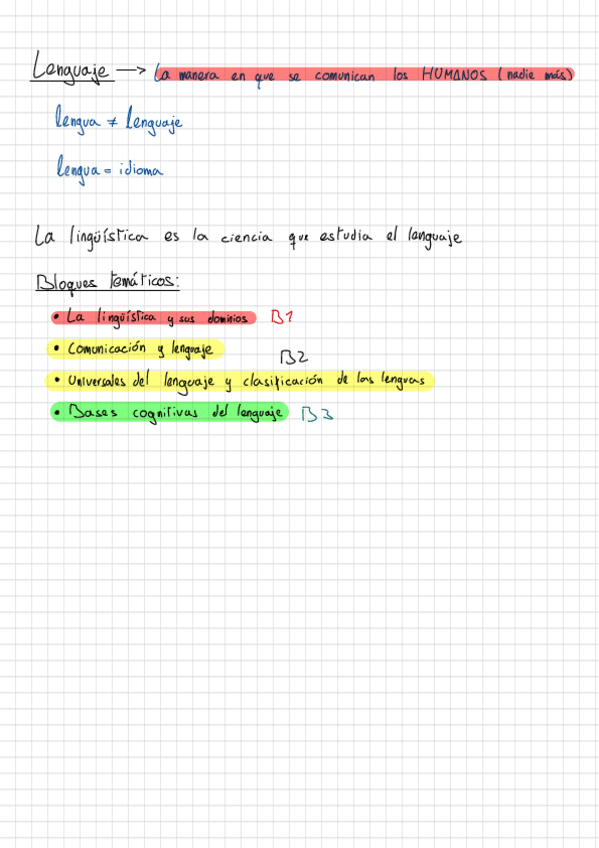 Lenguaje → La manera en que se comunican los HUMANOS (nadie más)
lengua ≠ lenguaje
lengua = idioma
La lingüística es la ciencia que estudia el lenguaje
Bloques temáticos:
• La lingüística y sus dominios B1
• Comunicación y lenguaje
B2
• Universales del lenguaje y clasificación de las lenguas
• Bases cognitivas del lenguaje B3